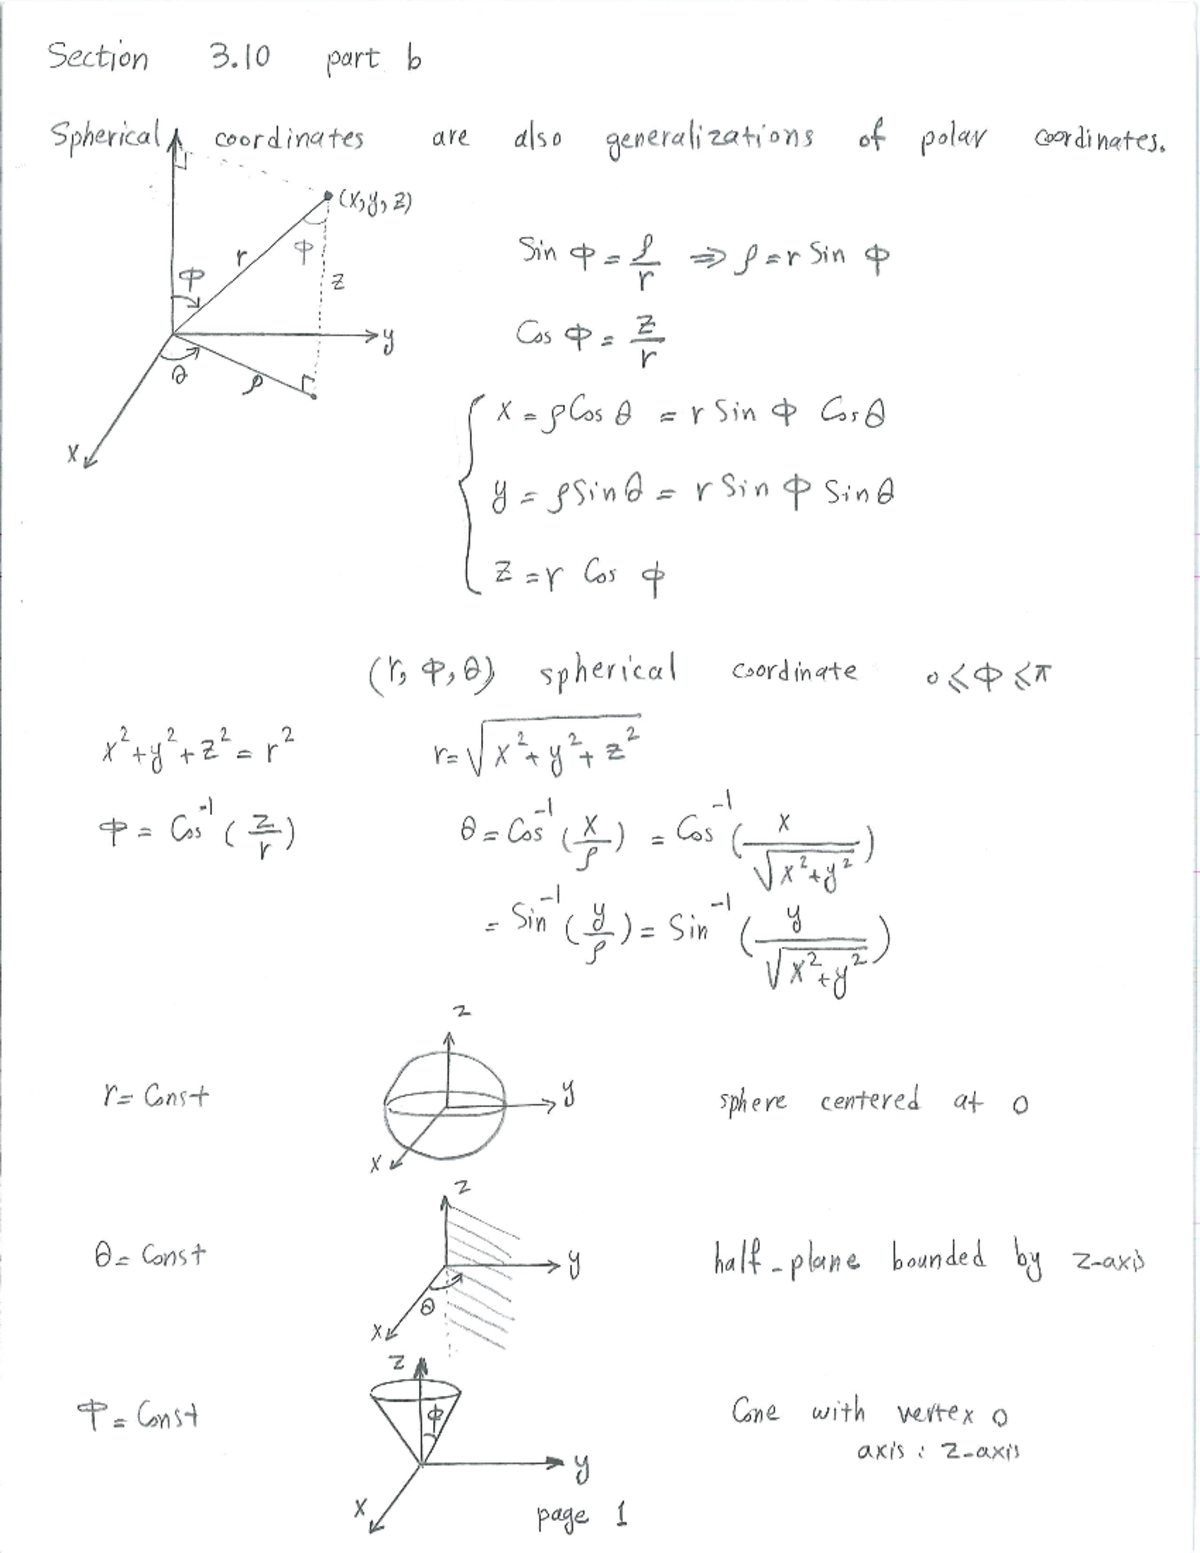 Section 3.10 part b
Spherical coordinates are also generalizations of polar coordinates.
(x,y,z)
r φ φ z
y
θ ρ
x
Sin φ = ρ/r ⇒ ρ = r Sin φ
Cos φ = z/r
x = ρ Cos θ = r Sin φ Cos θ
y = ρ Sin θ = r Sin φ Sin θ
z = r Cos φ
(r, φ, θ) spherical coordinate 0 ⩽ φ ⩽ π
x² + y² + z² = r² r = √(x² + y² + z²)
φ = Cos⁻¹(z/r) θ = Cos⁻¹(x/ρ) = Cos⁻¹(x/√(x²+y²))
= Sin⁻¹(y/ρ) = Sin⁻¹(y/√(x²+y²))
z
r = Const y sphere centered at o
x
z
θ = Const y half-plane bounded by z-axis
θ
x
z
φ = Const φ Cone with vertex o
axis : z-axis
y
x
page 1